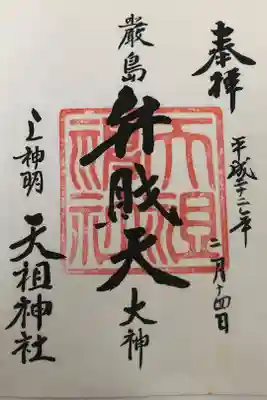 奉拝
平成二十二年
二月十四日
厳島
弁財天
大神
上神明
天祖神社
天祖神社